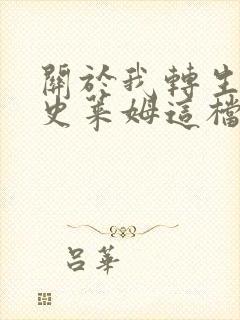 關於我轉生
史萊姆這檔
呂華